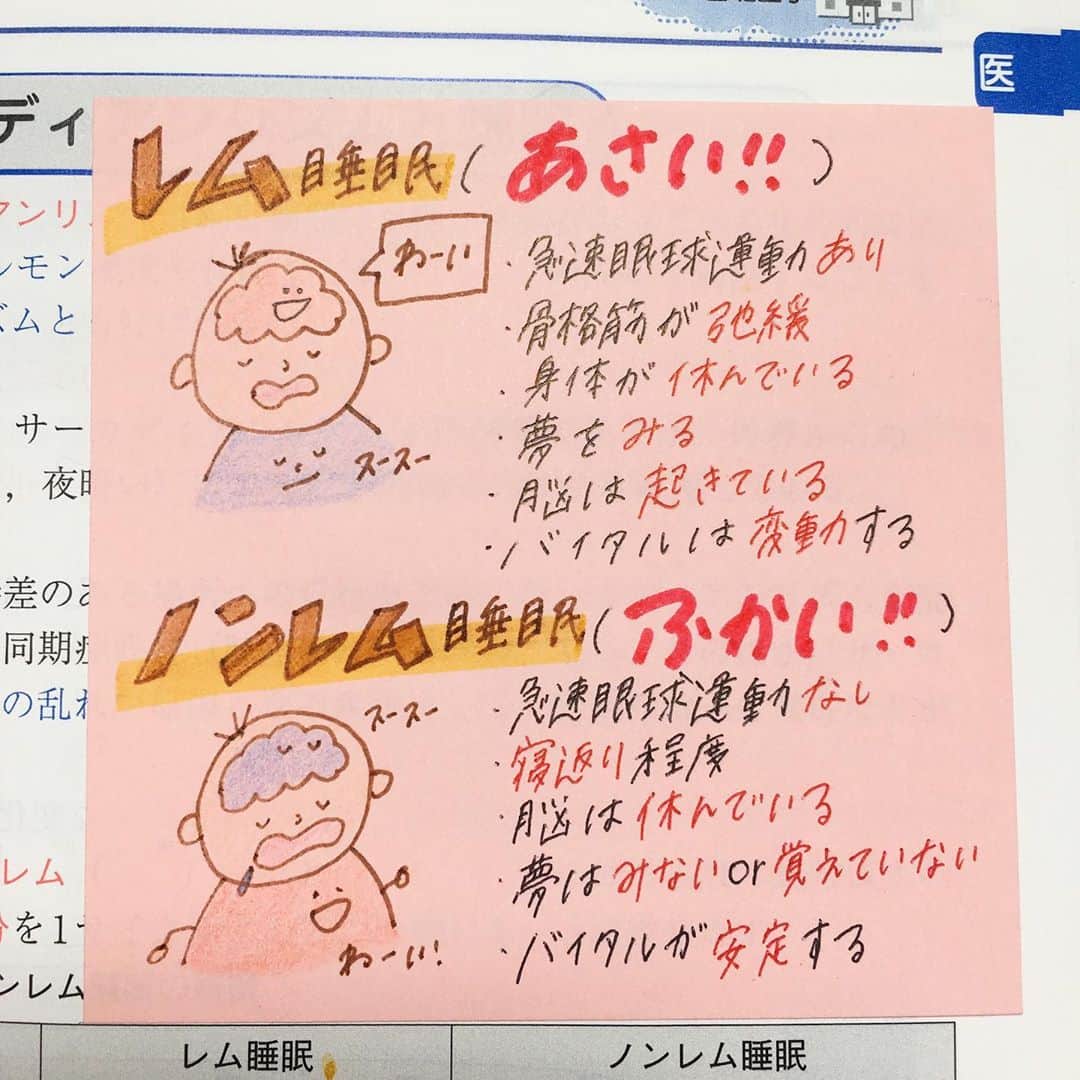 医
ディ
アンリ
ルモン
ズムと
サー
，夜
差のあ
同期
の乱れ
レム
を1
ンレム
レム睡眠(あさい!!)
わーい
・急速眼球運動あり
・骨格筋が弛緩
・身体が休んでいる
・夢をみる
スースー
・脳は起きている
・バイタルは変動する
ノンレム睡眠(ふかい!!)
スースー
・急速眼球運動なし
・寝返り程度
・脳は休んでいる
・夢はみないor覚えていない
・バイタルが安定する
わーい!
レム睡眠
ノンレム睡眠